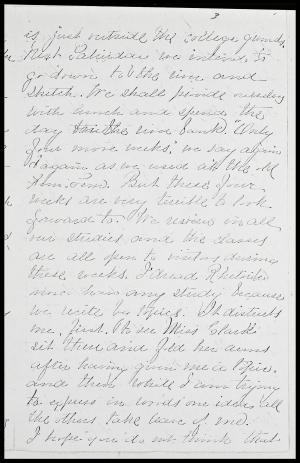 3
is just outside the college grounds.
Next Saturday we intend to
go down to the river and
sketch. We shall provide ourselves
with lunch and spend the
day on the river bank. "Only
four more weeks," we say again
& again as we used at the
Sem. But these four
weeks are very terrible to look
forward to. We review in all
our studies and the classes
are all open to visitors during
these weeks. I dread Rhetoric
more than any study because
we recite by topics. It distracts
me, first, to see Miss Clark
sit there and fold her arms
after having given me a topic.
and then while I am trying
to express in words one idea all
the others take leave of me.
I hope you do not think that